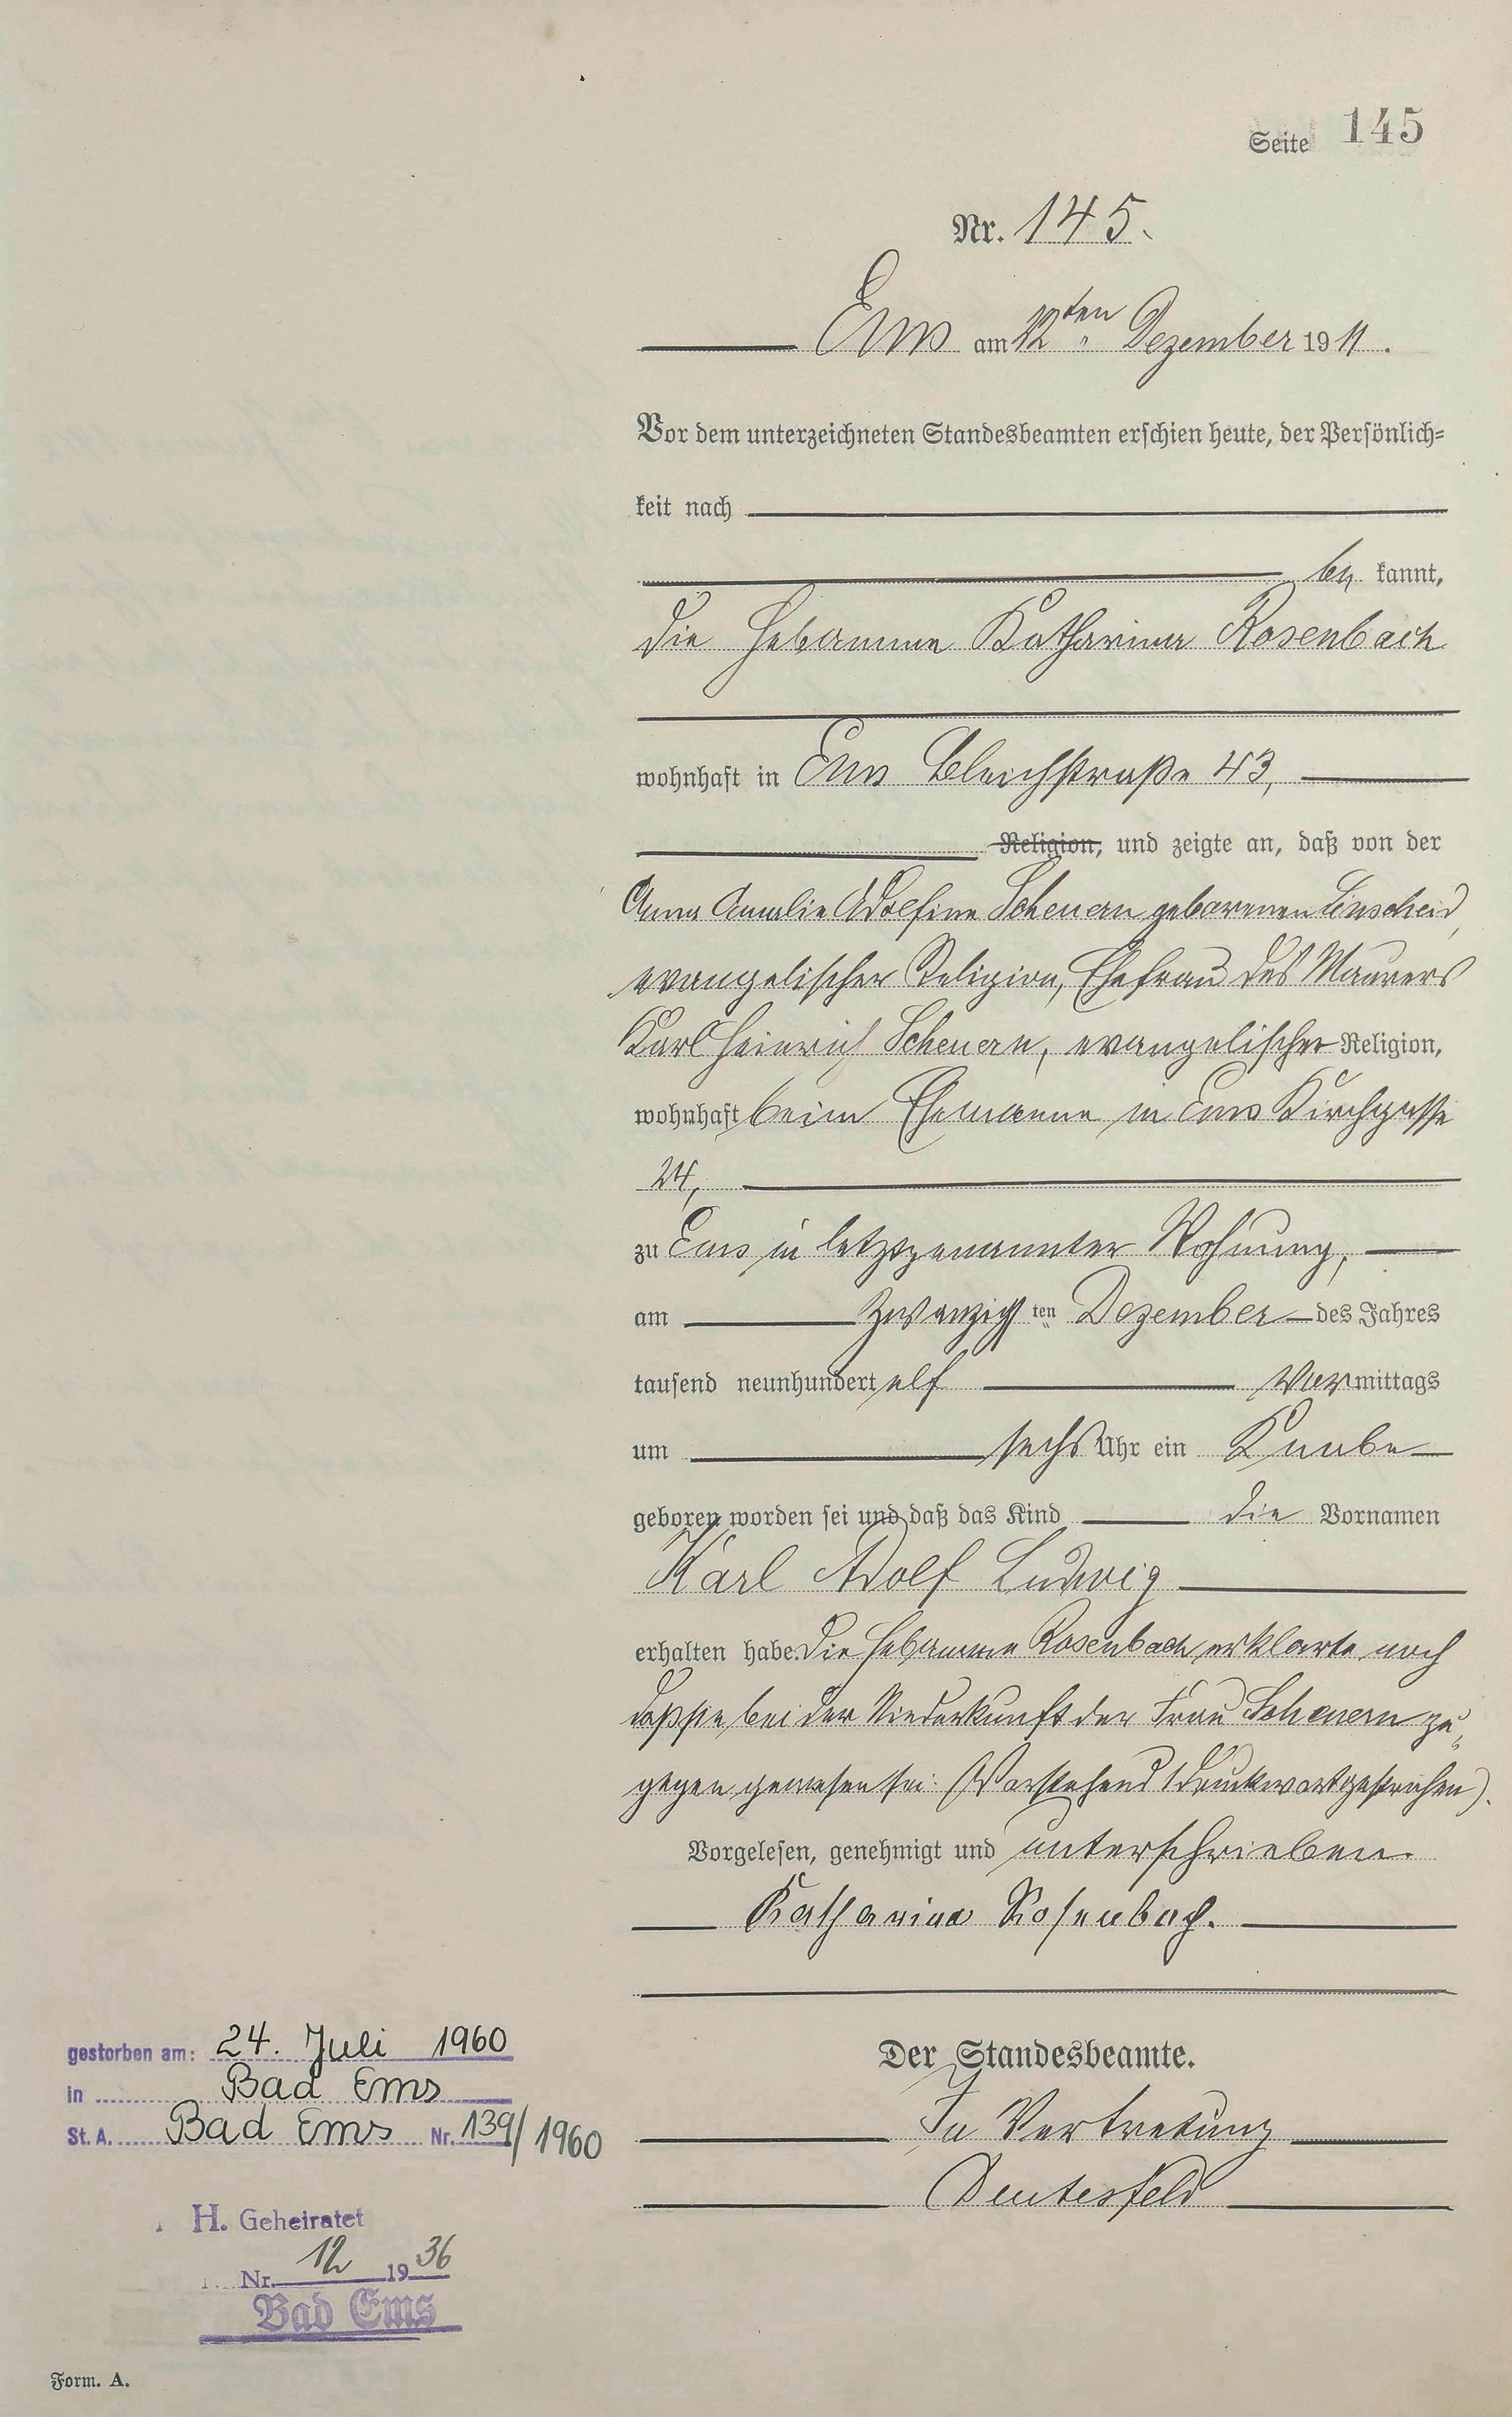 Seite 145
Nr. 145.
Ems am 22ten Dezember 1911.
Vor dem unterzeichneten Standesbeamten erschien heute, der Persönlich-
keit nach
be kannt,
die Hebamme Katharina Rosenbach
wohnhaft in Ems Bleichstraße 43,
Religion, und zeigte an, daß von der
Anna Amalie Adolfine Scheuern geborenen Linscheid,
evangelischer Religion, Ehefrau des Maurers
Karl Heinrich Scheuern, evangelischer Religion,
wohnhaft beim Ehemanne in Ems Kirchgasse
24,
zu Ems in letztgenannter Wohnung,
am zwanzigsten Dezember des Jahres
tausend neunhundert elf Vormittags
um sechs Uhr ein Knabe
geboren worden sei und daß das Kind die Vornamen
Karl Adolf Ludwig
erhalten habe. Die Hebamme Rosenbach erklärte noch
daß sie bei der Niederkunft der Frau Scheuern zu-
gegen gewesen sei. (Vorstehend 1 Druckwort gestrichen).
Vorgelesen, genehmigt und unterschrieben.
Katharina Rosenbach.
Der Standesbeamte.
In Vertretung
gestorben am: 24. Juli 1960
in Bad Ems
St. A. Bad Ems Nr. 139/1960
H. Geheiratet
Nr. 12 1936
Bad Ems
Form. A.